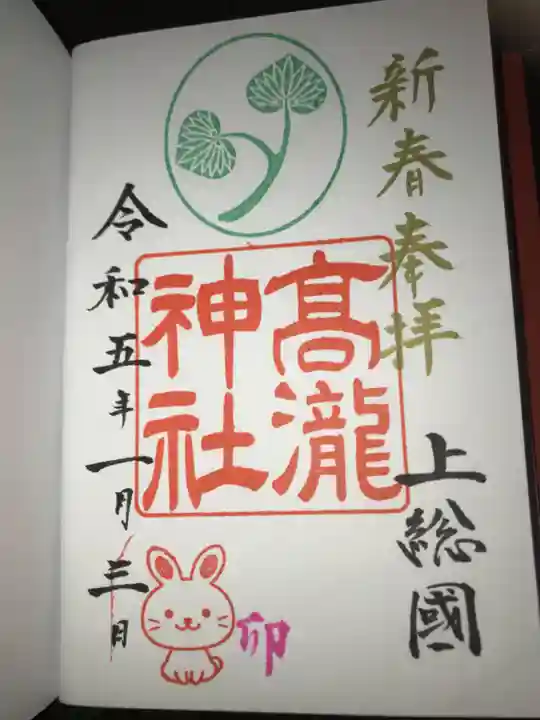 新春奉拝
上総國
高瀧神社
卯
令和五年一月三日